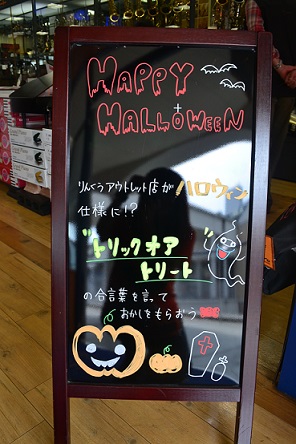 HAPPY
HALLOWEEN
りんくうアウトレット店がハロウィン
仕様に!?
"トリックオア
トリート"
の合言葉を言って
おかしをもらおう!!